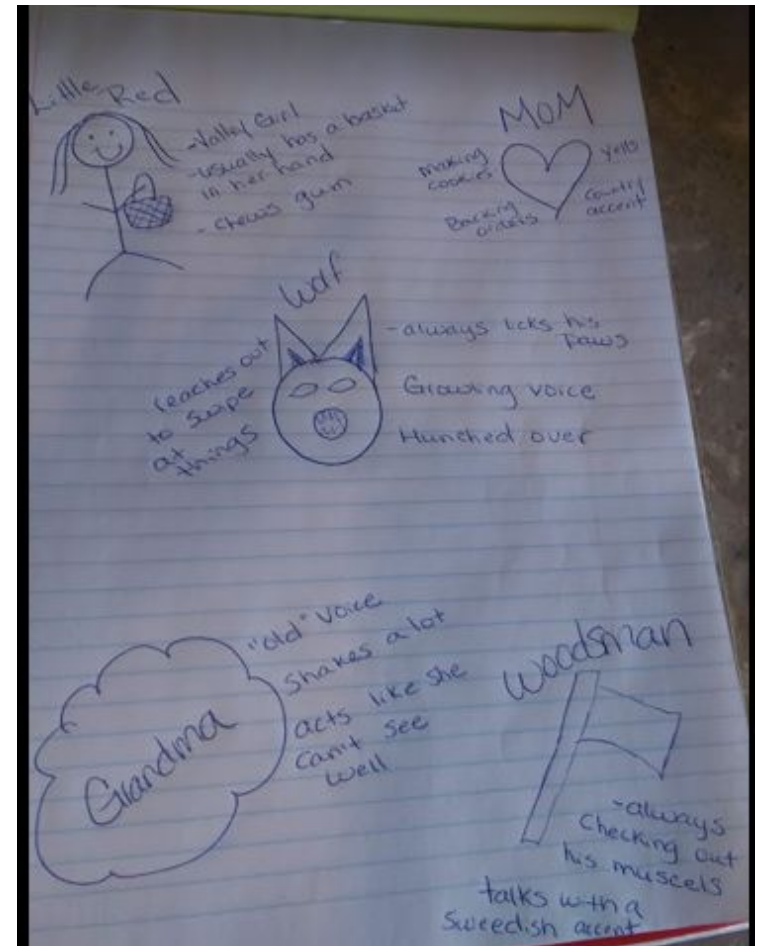 Little Red
-Valley Girl
-usually has a basket
in her hand
-chews gum
MOM
Making
cookies
yells
Barking
orders
Country
accent
Wolf
-always licks his
paws
reaches out
to swipe
at
things
Growling voice
Hunched over
Grandma
"old" voice
shakes a lot
acts like she
can't see
well
woodsman
-always
Checking out
his muscels
talks with a
Sweedish accent